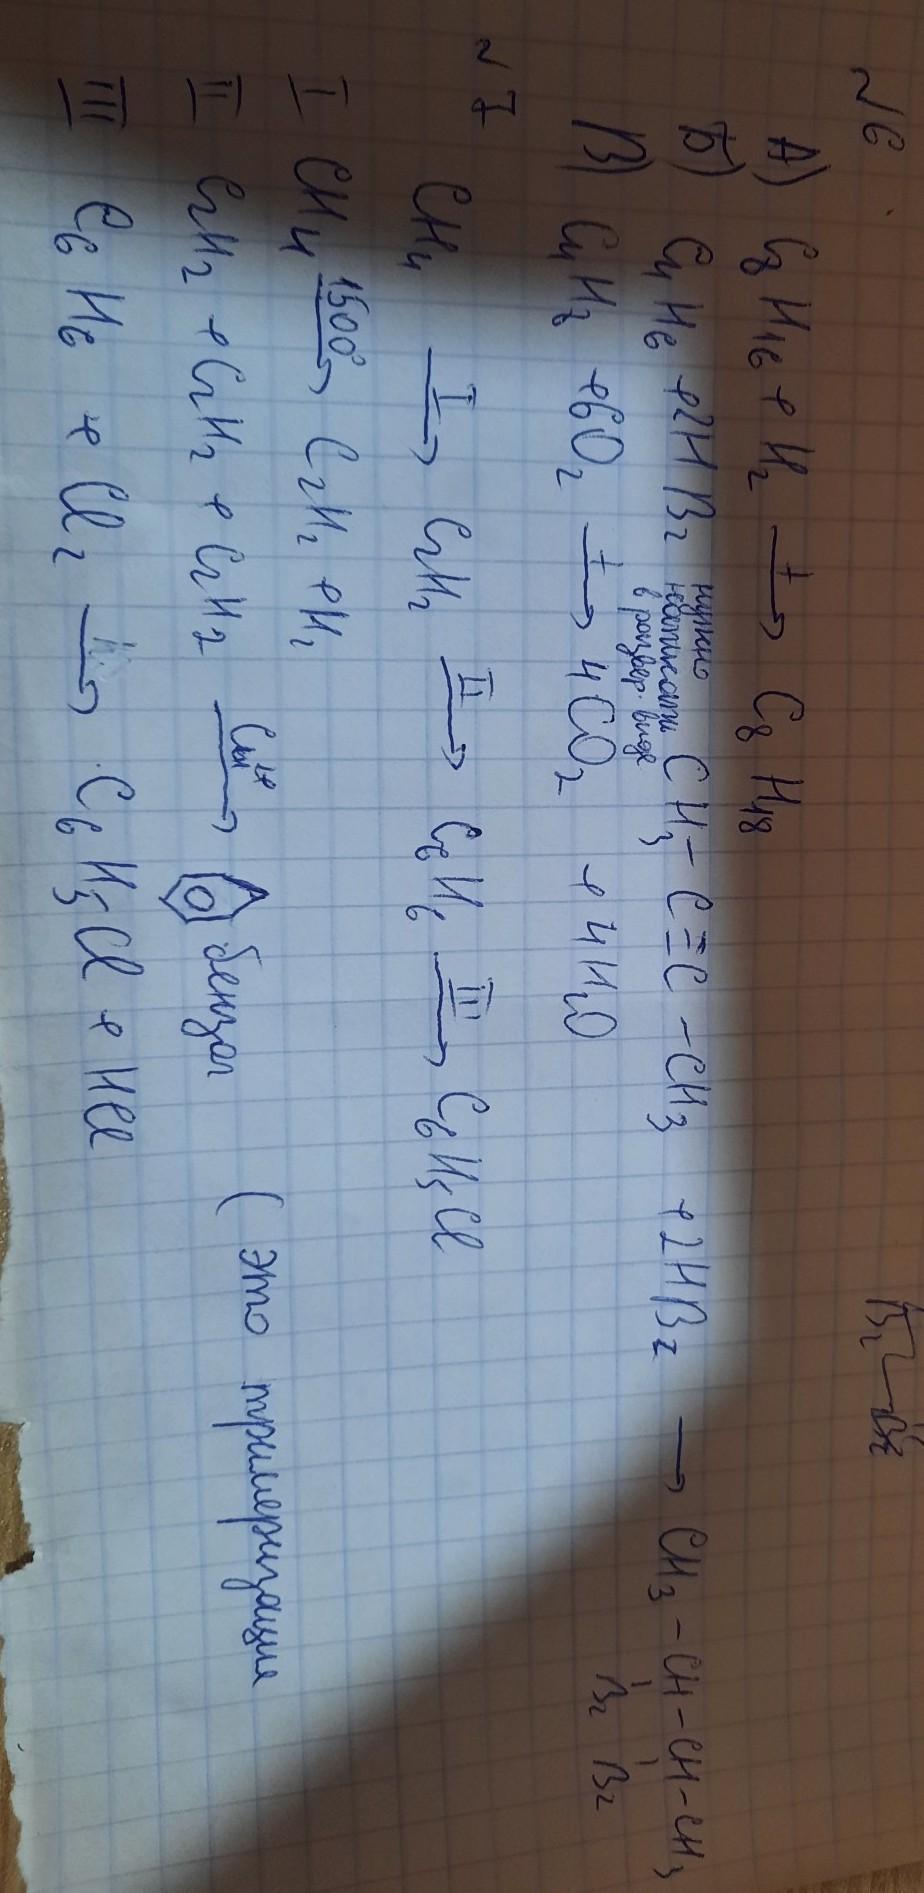 №6
А) C₈H₁₆ + H₂ →ᵗ C₈H₁₈
Б) C₄H₆ + 2HBr нужно написать в развёр. виде CH₃ – C ≡ C – CH₃ + 2HBr → CH₃ – CH – CH – CH₃
Br Br
В) C₄H₈ + 6O₂ →ᵗ 4CO₂ + 4H₂O
№7
CH₄ →ᴵ C₂H₂ →ᴵᴵ C₆H₆ →ᴵᴵᴵ C₆H₅Cl
I CH₄ 1500° → C₂H₂ + H₂
II C₂H₂ + C₂H₂ + C₂H₂ → бензол (это тримеризация
III C₆H₆ + Cl₂ → C₆H₅Cl + HCl